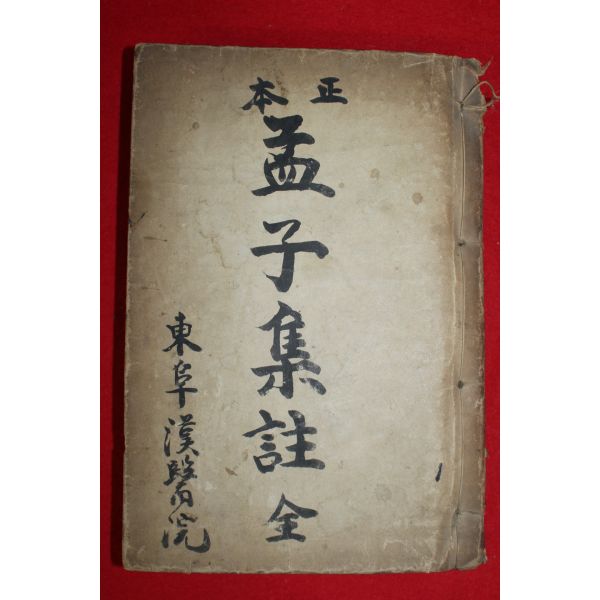 正本
孟子集註 全
東阜漢醫院